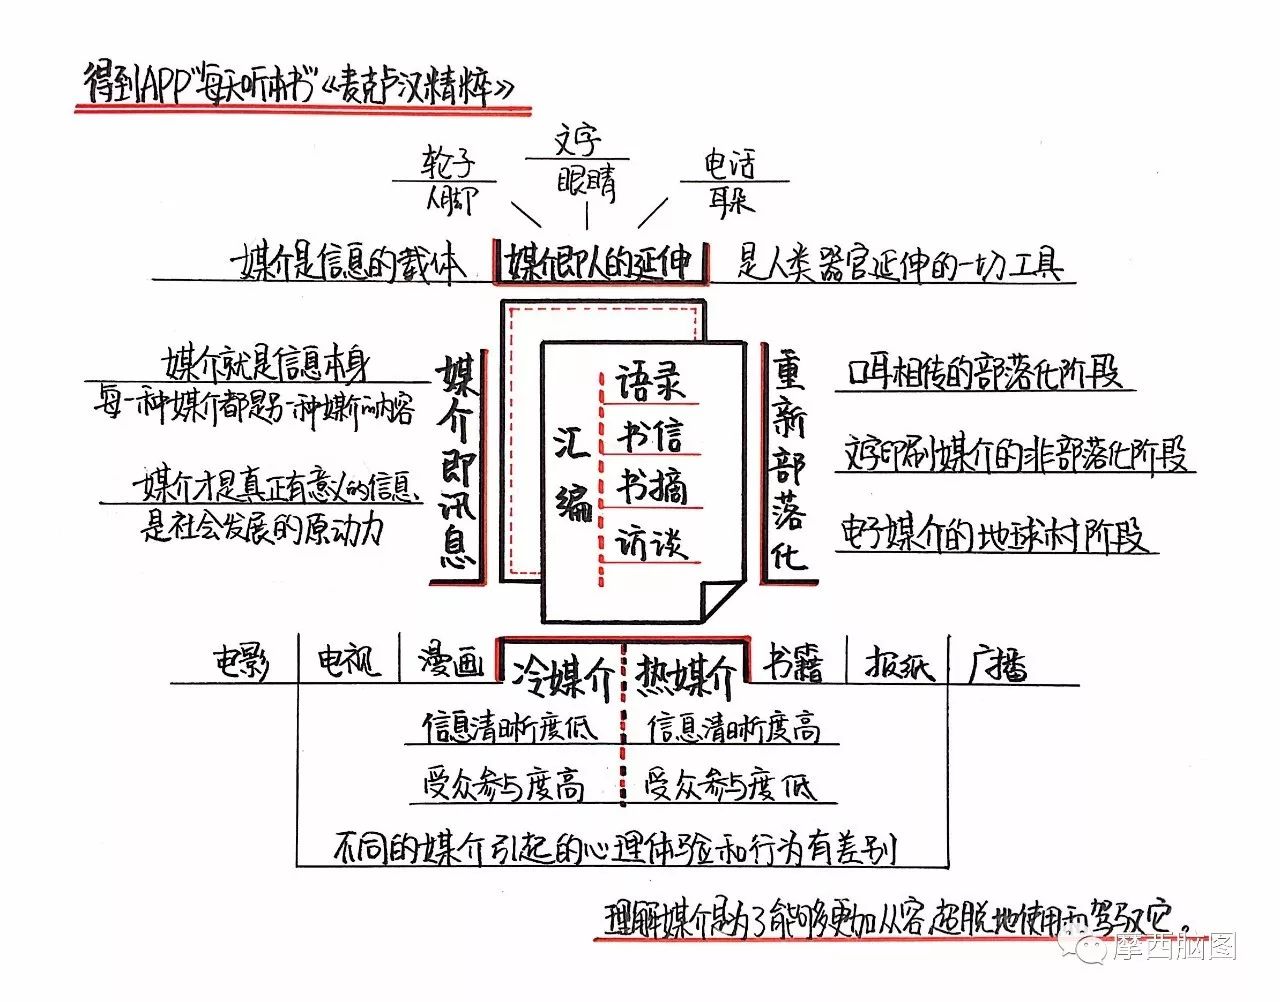 得到APP"每天听本书"《麦克卢汉精粹》
文字
眼睛
轮子
人脚
电话
耳朵
媒介是信息的载体
媒介即人的延伸
是人类器官延伸的一切工具
媒介就是信息本身
每一种媒介都是另一种媒介的内容
媒介才是真正有意义的信息、
是社会发展的原动力
媒介即讯息
汇编
语录
书信
书摘
访谈
重新部落化
口耳相传的部落化阶段
文字印刷媒介的非部落化阶段
电子媒介的地球村阶段
电影 电视 漫画 冷媒介 热媒介 书籍 报纸 广播
信息清晰度低 信息清晰度高
受众参与度高 受众参与度低
不同的媒介引起的心理体验和行为有差别
理解媒介是为了能够更加从容、超脱地使用和驾驭它。
摩西脑图